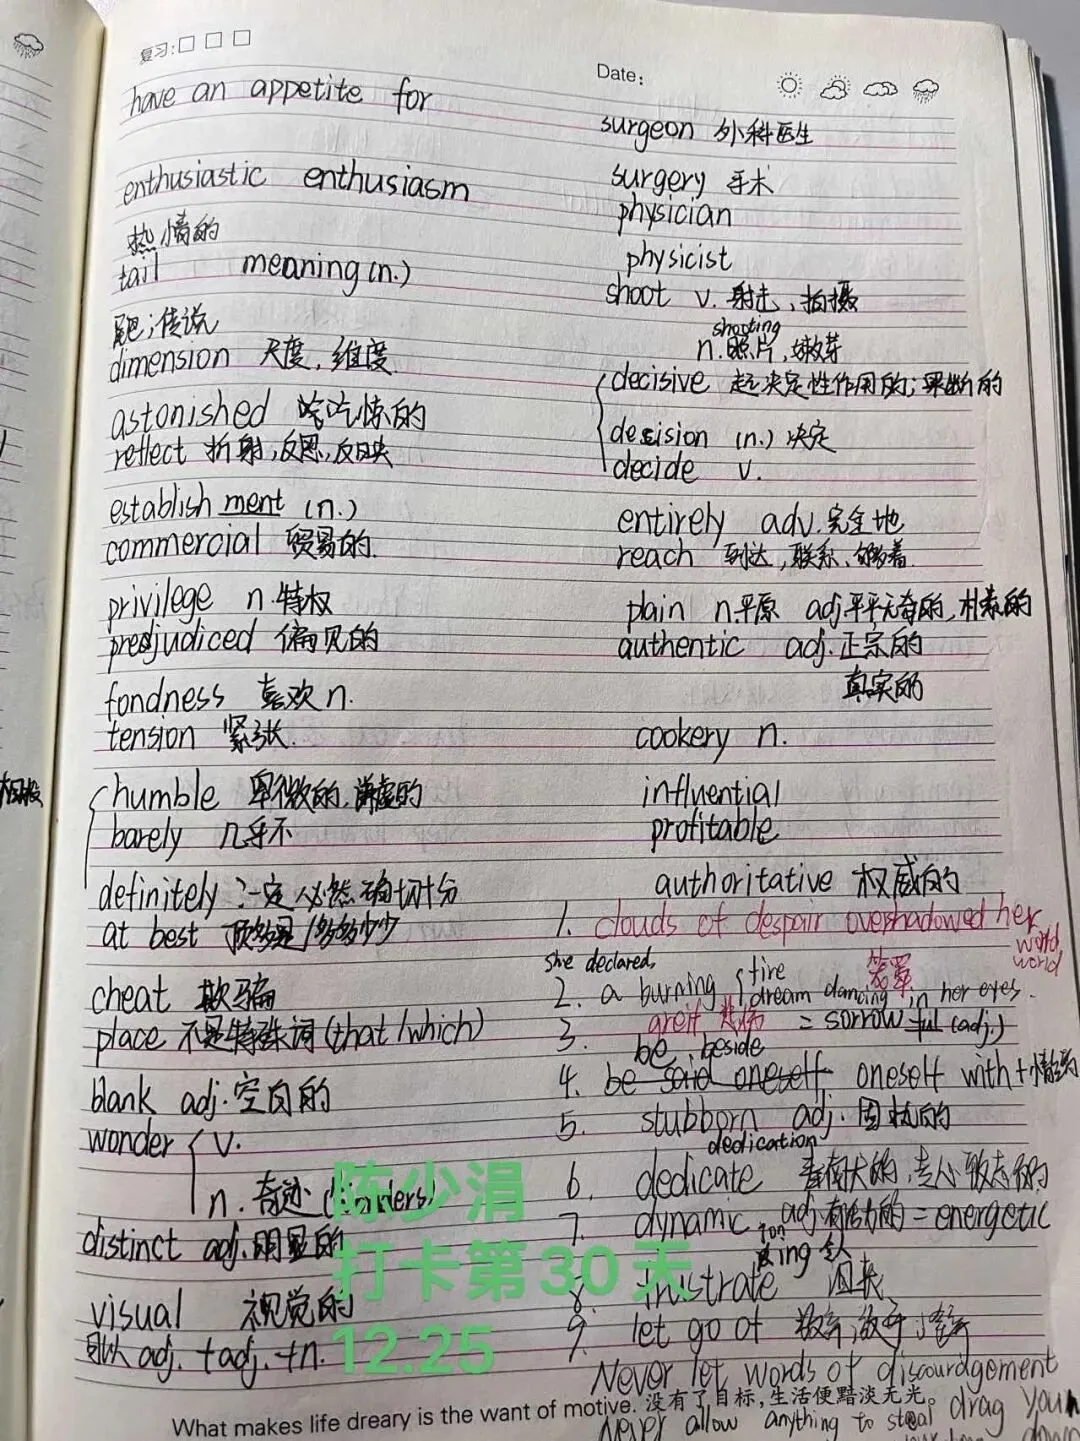 复习:
Date:
have an appetite for
enthusiastic enthusiasm
热情的
tail meaning (n.)
尾巴;传说
dimension 尺度,维度
astonished 吃惊的
reflect 折射,反思,反映
establishment (n.)
commercial 贸易的.
privilege n.特权
predjudiced 偏见的
fondness 喜欢 n.
tension 紧张.
humble 卑微的,谦虚的
barely 几乎不
definitely 一定 必然 确切
at best 顶多是
cheat 欺骗
place 不是特殊词 (that/which)
blank adj.空白的
wonder v.
n.奇迹
distinct adj.明显的
visual 视觉的
adj. + adj. + n.
surgeon 外科医生
surgery 手术
physician
physicist
shoot v.射击、拍摄
shooting
n.照片,嫩芽
decisive 起决定性作用的;果断的
decision (n.) 决定
decide v.
entirely adv.完全地
reach 到达,联系、够着.
plain n.平原 adj.平平无奇的,朴素的
authentic adj.正宗的
真实的
cookery n.
influential
profitable
authoritative 权威的
1. clouds of despair overshadowed her
world
world
she declared,
笼罩
2. a burning fire
dream dancing in her eyes.
3. greif 悲伤 = sorrowful (adj.)
be beside
4. be said oneself oneself with + 情绪
5. stubborn adj.固执的
dedication
6. dedicate
7. dynamic adj.有活力的 = energetic
8. frustrate
9. let go of 放弃,放手
Never let words of discouragement
drag you
down
Never allow anything to steal
What makes life dreary is the want of motive. 没有了目标,生活便黯淡无光。
陈少涓
打卡第30天
12.25